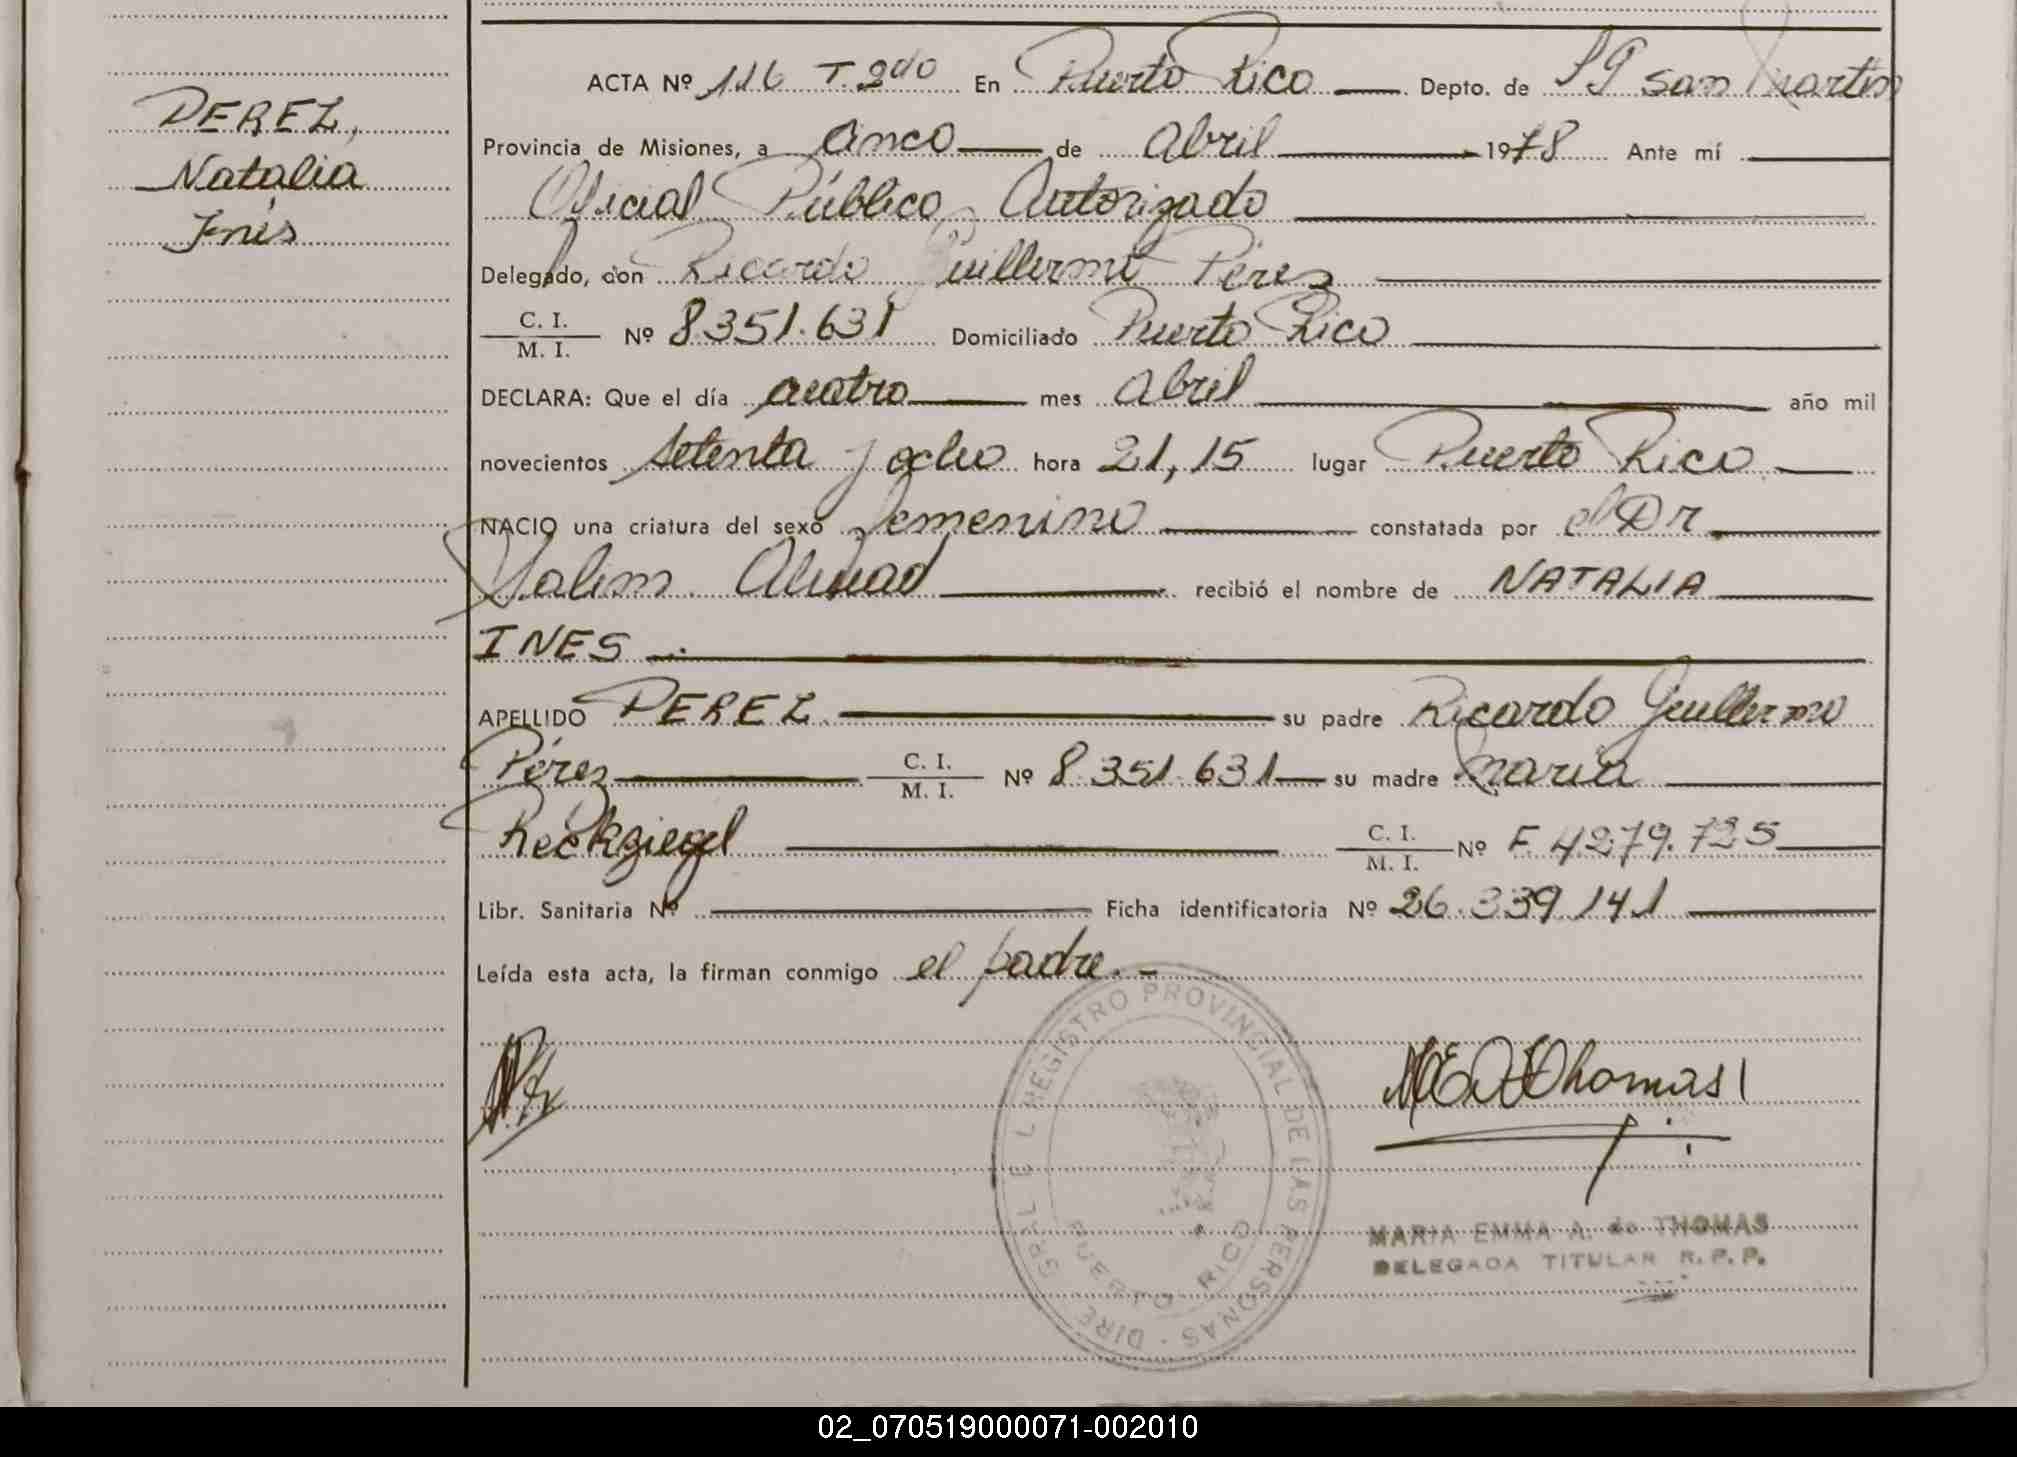 PEREZ,
Natalia
Inés
ACTA Nº 116 T. 2do En Puerto Rico Depto. de San Martín
Provincia de Misiones, a cinco de Abril 1978 Ante mí
Oficial Público Autorizado
Delegado, don Ricardo Guillermo Pérez
C. I.
M. I. Nº 8.351.631 Domiciliado Puerto Rico
DECLARA: Que el día cuatro mes Abril año mil
novecientos setenta y ocho hora 21,15 lugar Puerto Rico
NACIO una criatura del sexo femenino constatada por el Dr
Ahmad recibió el nombre de NATALIA
INES
APELLIDO PEREZ su padre Ricardo Guillermo
Pérez C. I. M. I. Nº 8.351.631 su madre Maria
Reckziegel C. I. M. I. Nº F. 4.279.725
Libr. Sanitaria Nº Ficha identificatoria Nº 26.339.141
Leída esta acta, la firman conmigo el padre.-
REGISTRO PROVINCIAL DE LAS PERSONAS
PUERTO RICO
MARIA EMMA A. de THOMAS
DELEGADA TITULAR R. P. P.
02_070519000071-002010